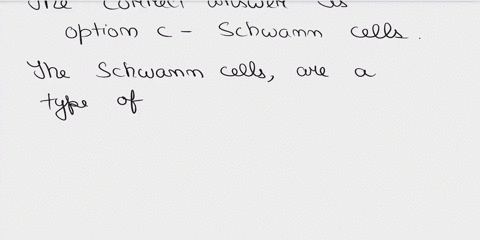 The correct answer is
option c - Schwann cells.
The Schwann cells, are a
type of